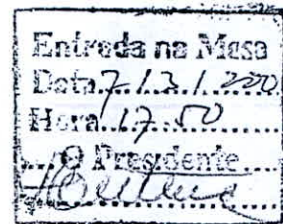 Entrada na Mesa
Data 7/3/2000
Hora 17.50
O Presidente